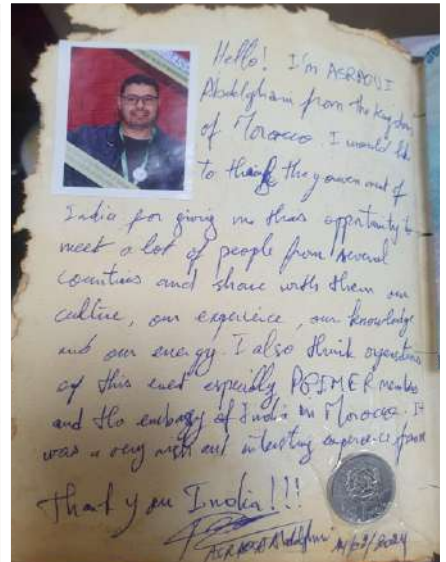 Hello! I'm ASRAOUI
Abdelghani from the Kingdom
of Morocco. I would like
to thank the government of
India for giving me this opportunity to
meet a lot of people from several
countries and share with them our
culture, our experience, our knowledge
and our energy. I also think
of this event especially PGIMER members
and the embassy of India in Morocco. It
was a very and experience
Thank you India!!!
ASRAOUI Abdelghani /02/2024